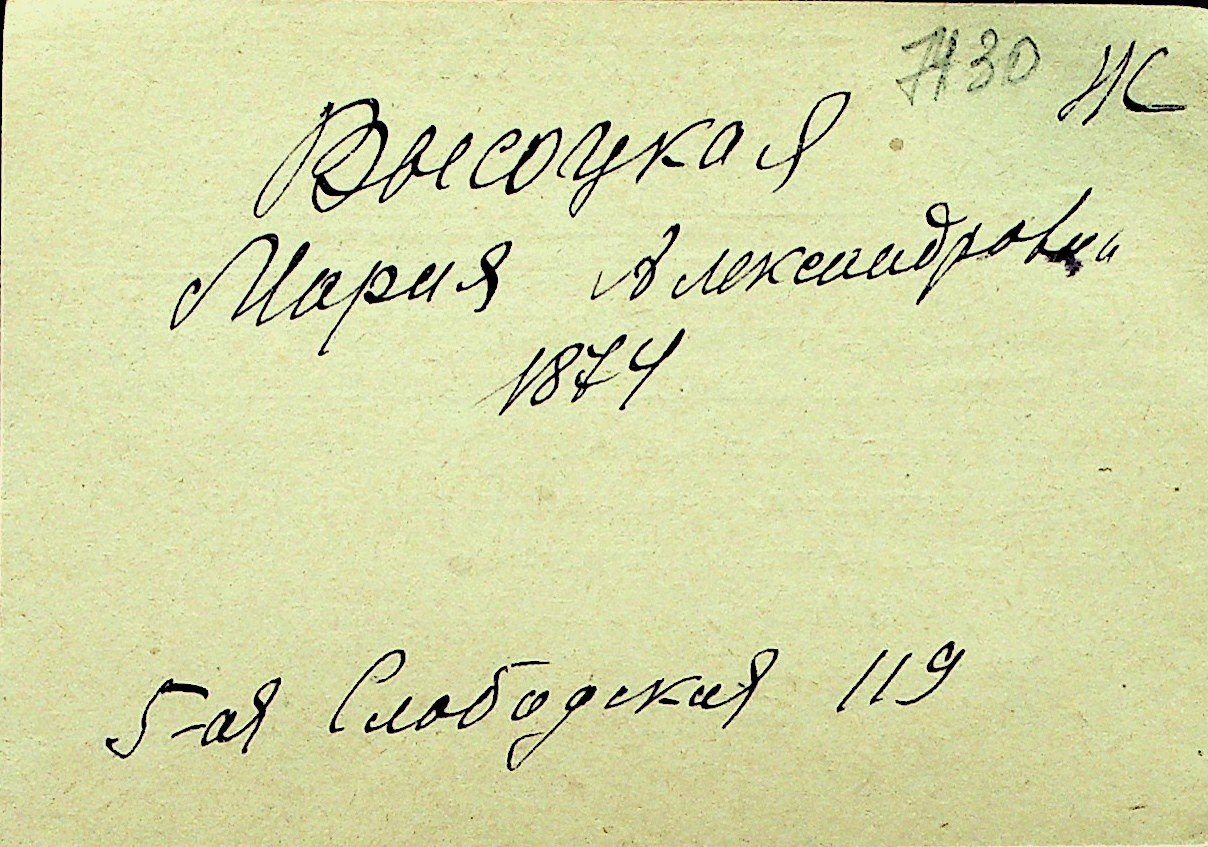 7430 Ж
Высоцкая
Мария Александровна
1874
5-ая Слободская 119